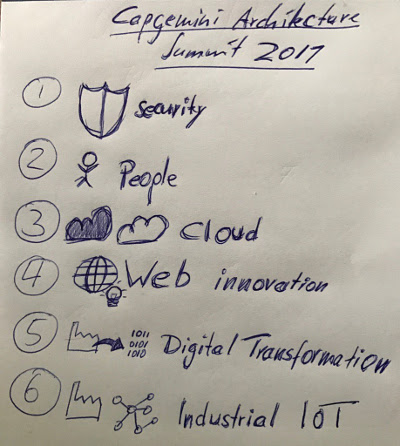 Capgemini Architecture
Summit 2017
1 Security
2 People
3 Cloud
4 Web innovation
5 1011 0101 1010 Digital Transformation
6 Industrial IoT